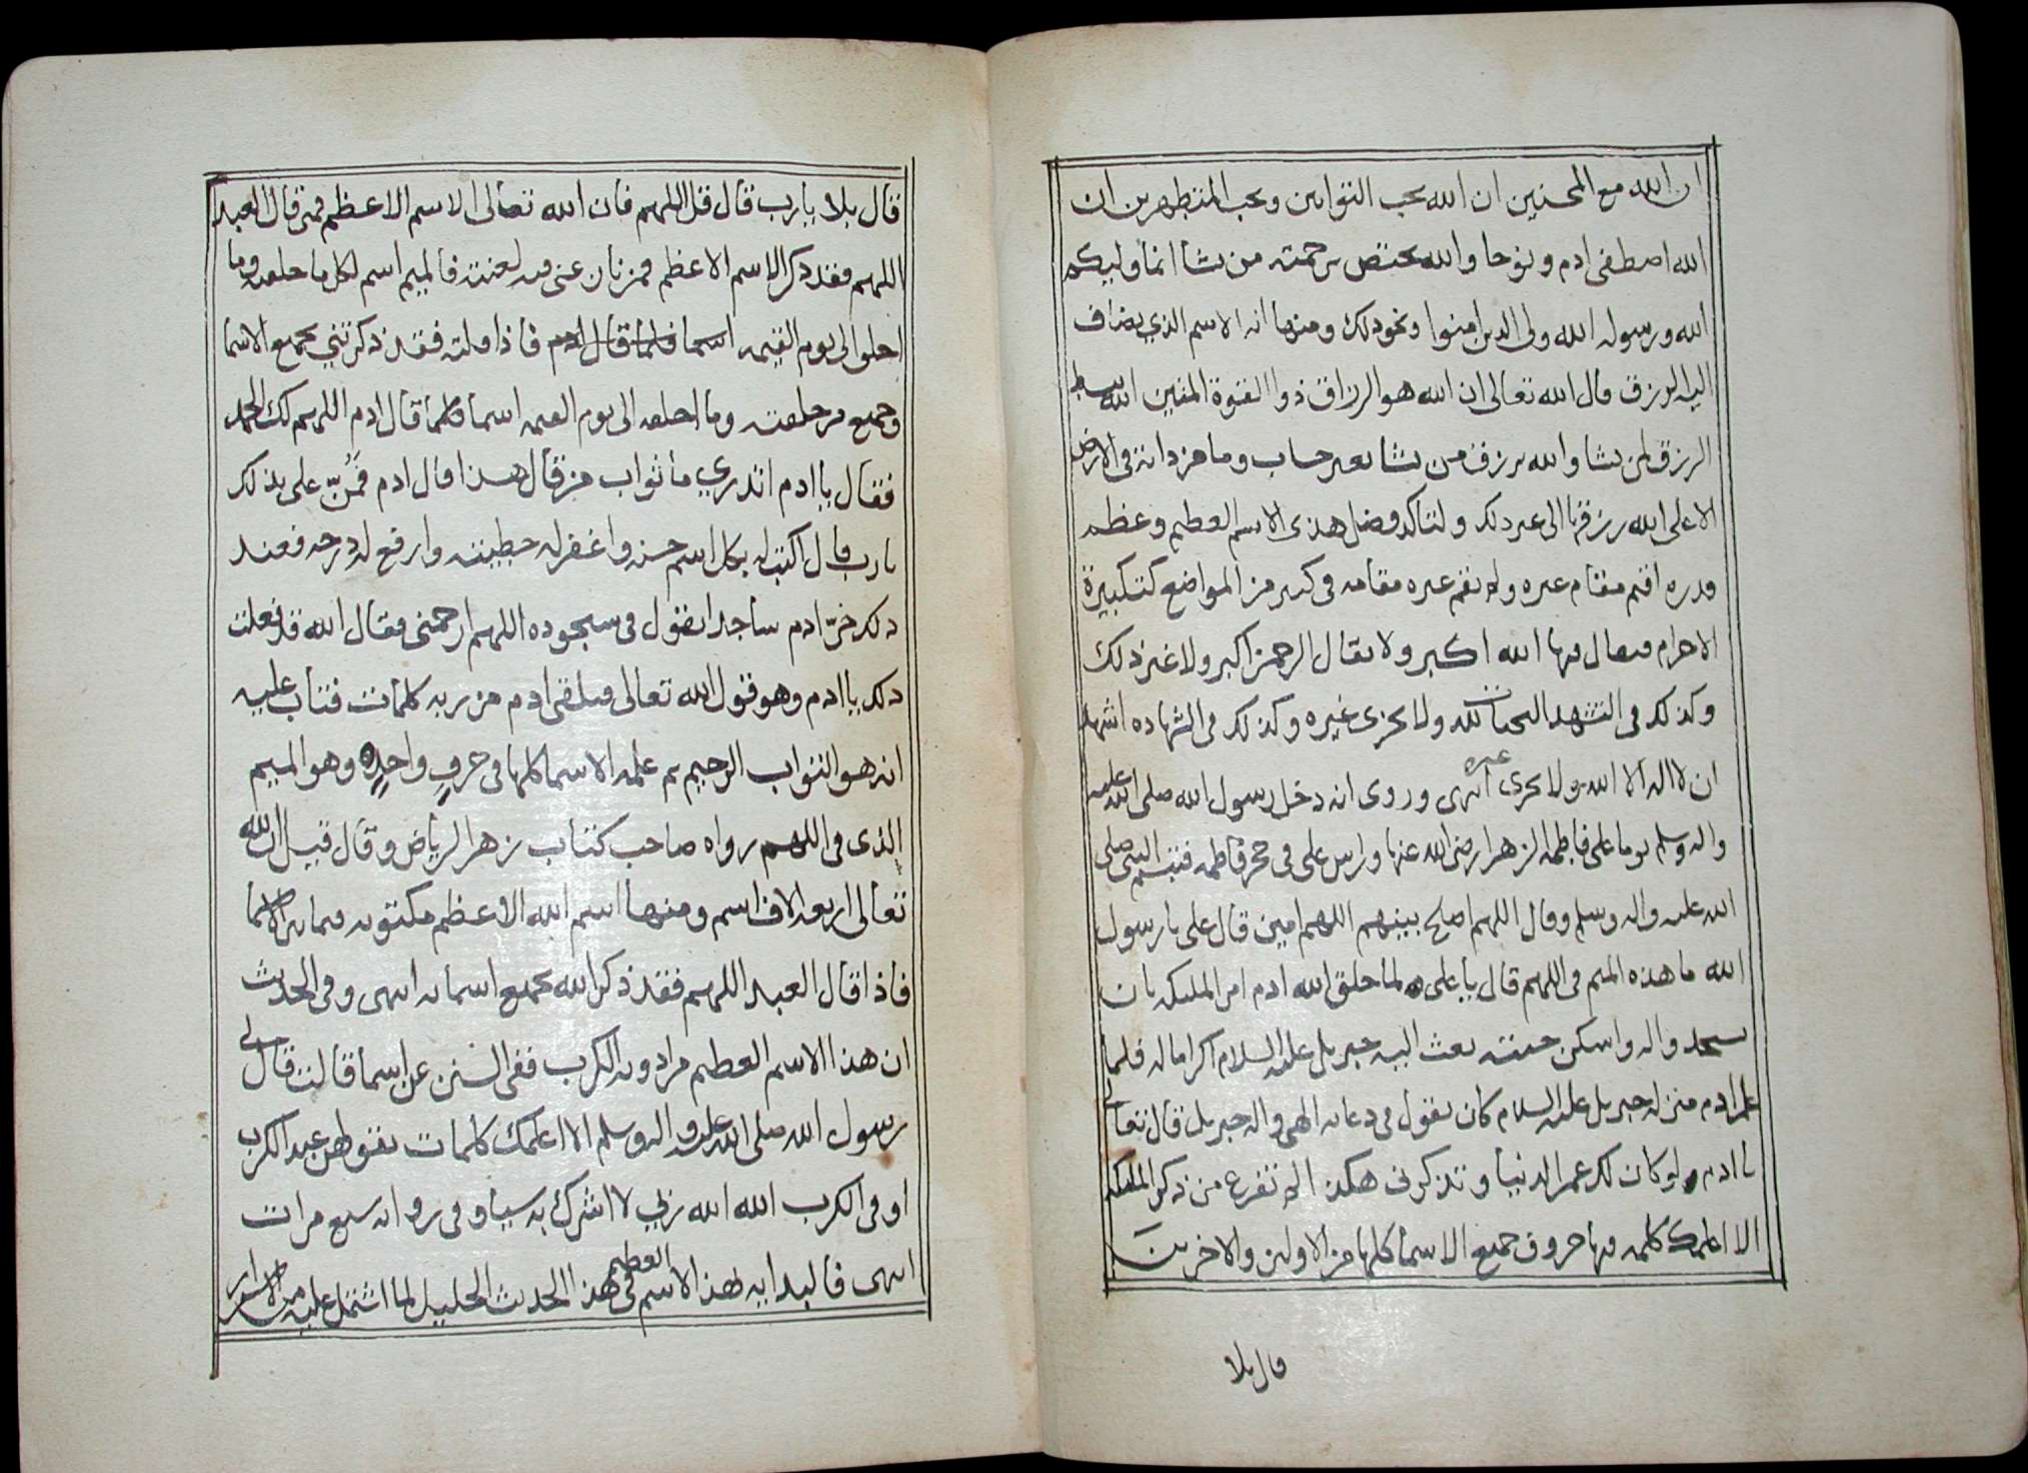 ان الله مع المحسنين ان الله يحب التوابين ويحب المتطهرين ان
الله اصطفى ادم ونوحا والله يختص برحمته من يشا انما وليكم
الله ورسوله الله ولي الذين امنوا ونحو ذلك ومنها انه الاسم الذي يضاف
اليه الرزق قال الله تعالى ان الله هو الرزاق ذوا القوة المتين الله يبسط
الرزق لمن يشا والله يرزق من يشا بغير حساب وما من دابة في الارض
الا على الله رزقها الى غير ذلك ولتاكد فضل هذى الاسم العظيم وعظم
قدره اقيم مقام غيره ولم يقم غيره مقامه في كثير من المواضع كتكبيرة
الاحرام فيقال فيها الله اكبر ولا يقال الرحمن اكبر ولا غير ذلك
وكذلك في التشهد التحيات لله ولا يجزى غيره وكذلك في الشهاده اشهد
ان لا اله الا الله ولا يجزى غيره انتهى وروى انه دخل رسول الله صلى الله عليه
واله وسلم يوما على فاطمه الزهرا رضي الله عنها وراس على في حجر فاطمه فتبسم النبي صلى
الله عليه واله وسلم وقال اللهم اصلح بينهم اللهم امين قال على يا رسول
الله ما هذه الميم في اللهم قال يا على لما خلق الله ادم امر الملئكه بان
يسجدو اله واسكن جنته بعث اليه جبريل عليه السلام اكراما له فلما
علم ادم منزله جبريل عليه السلام كان يقول في دعائه الهي واله جبريل قال تعالى
يا ادم لو كان لك عمر الدنيا وتذكرني هكذا لم تفرغ من ذكر الملئكه
الا اعلمك كلمه فيها حروف جميع الاسما كلها من الاولين والاخرين
قال بلا
قال بلا يا رب قال قل اللهم فان الله تعالى الاسم الاعظم فمتى قال العبد
اللهم فقد ذكر الاسم الاعظم فالميم اسم لكل ما خلقت وما
اخلق الى يوم القيمه اسما فلما قال ادم فاذا قلته فقد ذكرتني بجميع الاسما
وجميع من خلقت وما اخلقه الى يوم القيمه اسما فلما قال ادم اللهم لك الحمد
فقال يا ادم اتدري ما ثواب من قال هذا قال ادم فمُنّ على بذلك
يا رب قال اكتب له بكل اسم حسنه واغفر له خطيئته وارفع له درجه فعند
ذلك خرّ ادم ساجدا يقول في سجوده اللهم ارحمني فقال الله قد فعلت
ذلك يا ادم وهو قول الله تعالى فتلقى ادم من ربه كلمات فتاب عليه
انه هو التواب الرحيم ثم علمه الاسما كلها في حرفٍ واحدٍ وهو الميم
الذى في اللهم رواه صاحب كتاب زهر الرياض وقال قيل ان لله
تعالى اربعه الاف اسم ومنها اسم الله الاعظم مكتوبه
فاذا قال العبد اللهم فقد ذكر الله بجميع اسمائه انتهى وفي الحديث
ان هذا الاسم العظيم من ادويه الكرب ففي السنن عن اسما قالت قال لي
رسول الله صلى الله عليه واله وسلم الا اعلمك كلمات تقولهن عند الكرب
او في الكرب الله الله ربي لا اشرك به شيا وفي روايه سبع مرات
انتهى فالبدايه بهذا الاسم العظيم في هذا الحديث الجليل لما اشتمل عليه من الاسرار